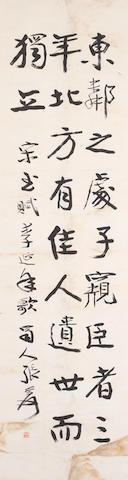 東鄰之處子窺臣者三
年北方有佳人遺世而
獨立
宋玉賦李延年歌 蜀人張爰